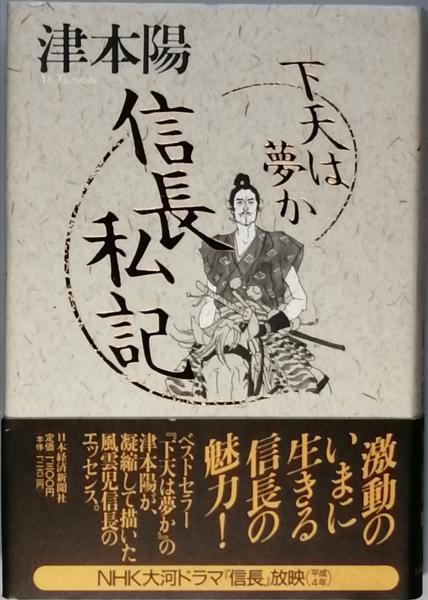 津本陽
下天は
夢か
信長
私記
激動の
いまに
生きる
信長の
魅力！
ベストセラー
『下天は夢か』の
津本陽が、
凝縮して描いた
風雲児信長の
エッセンス。
日本経済新聞社
定価一、三〇〇円
本体一、二六二円
NHK大河ドラマ『信長』放映(平成4年)